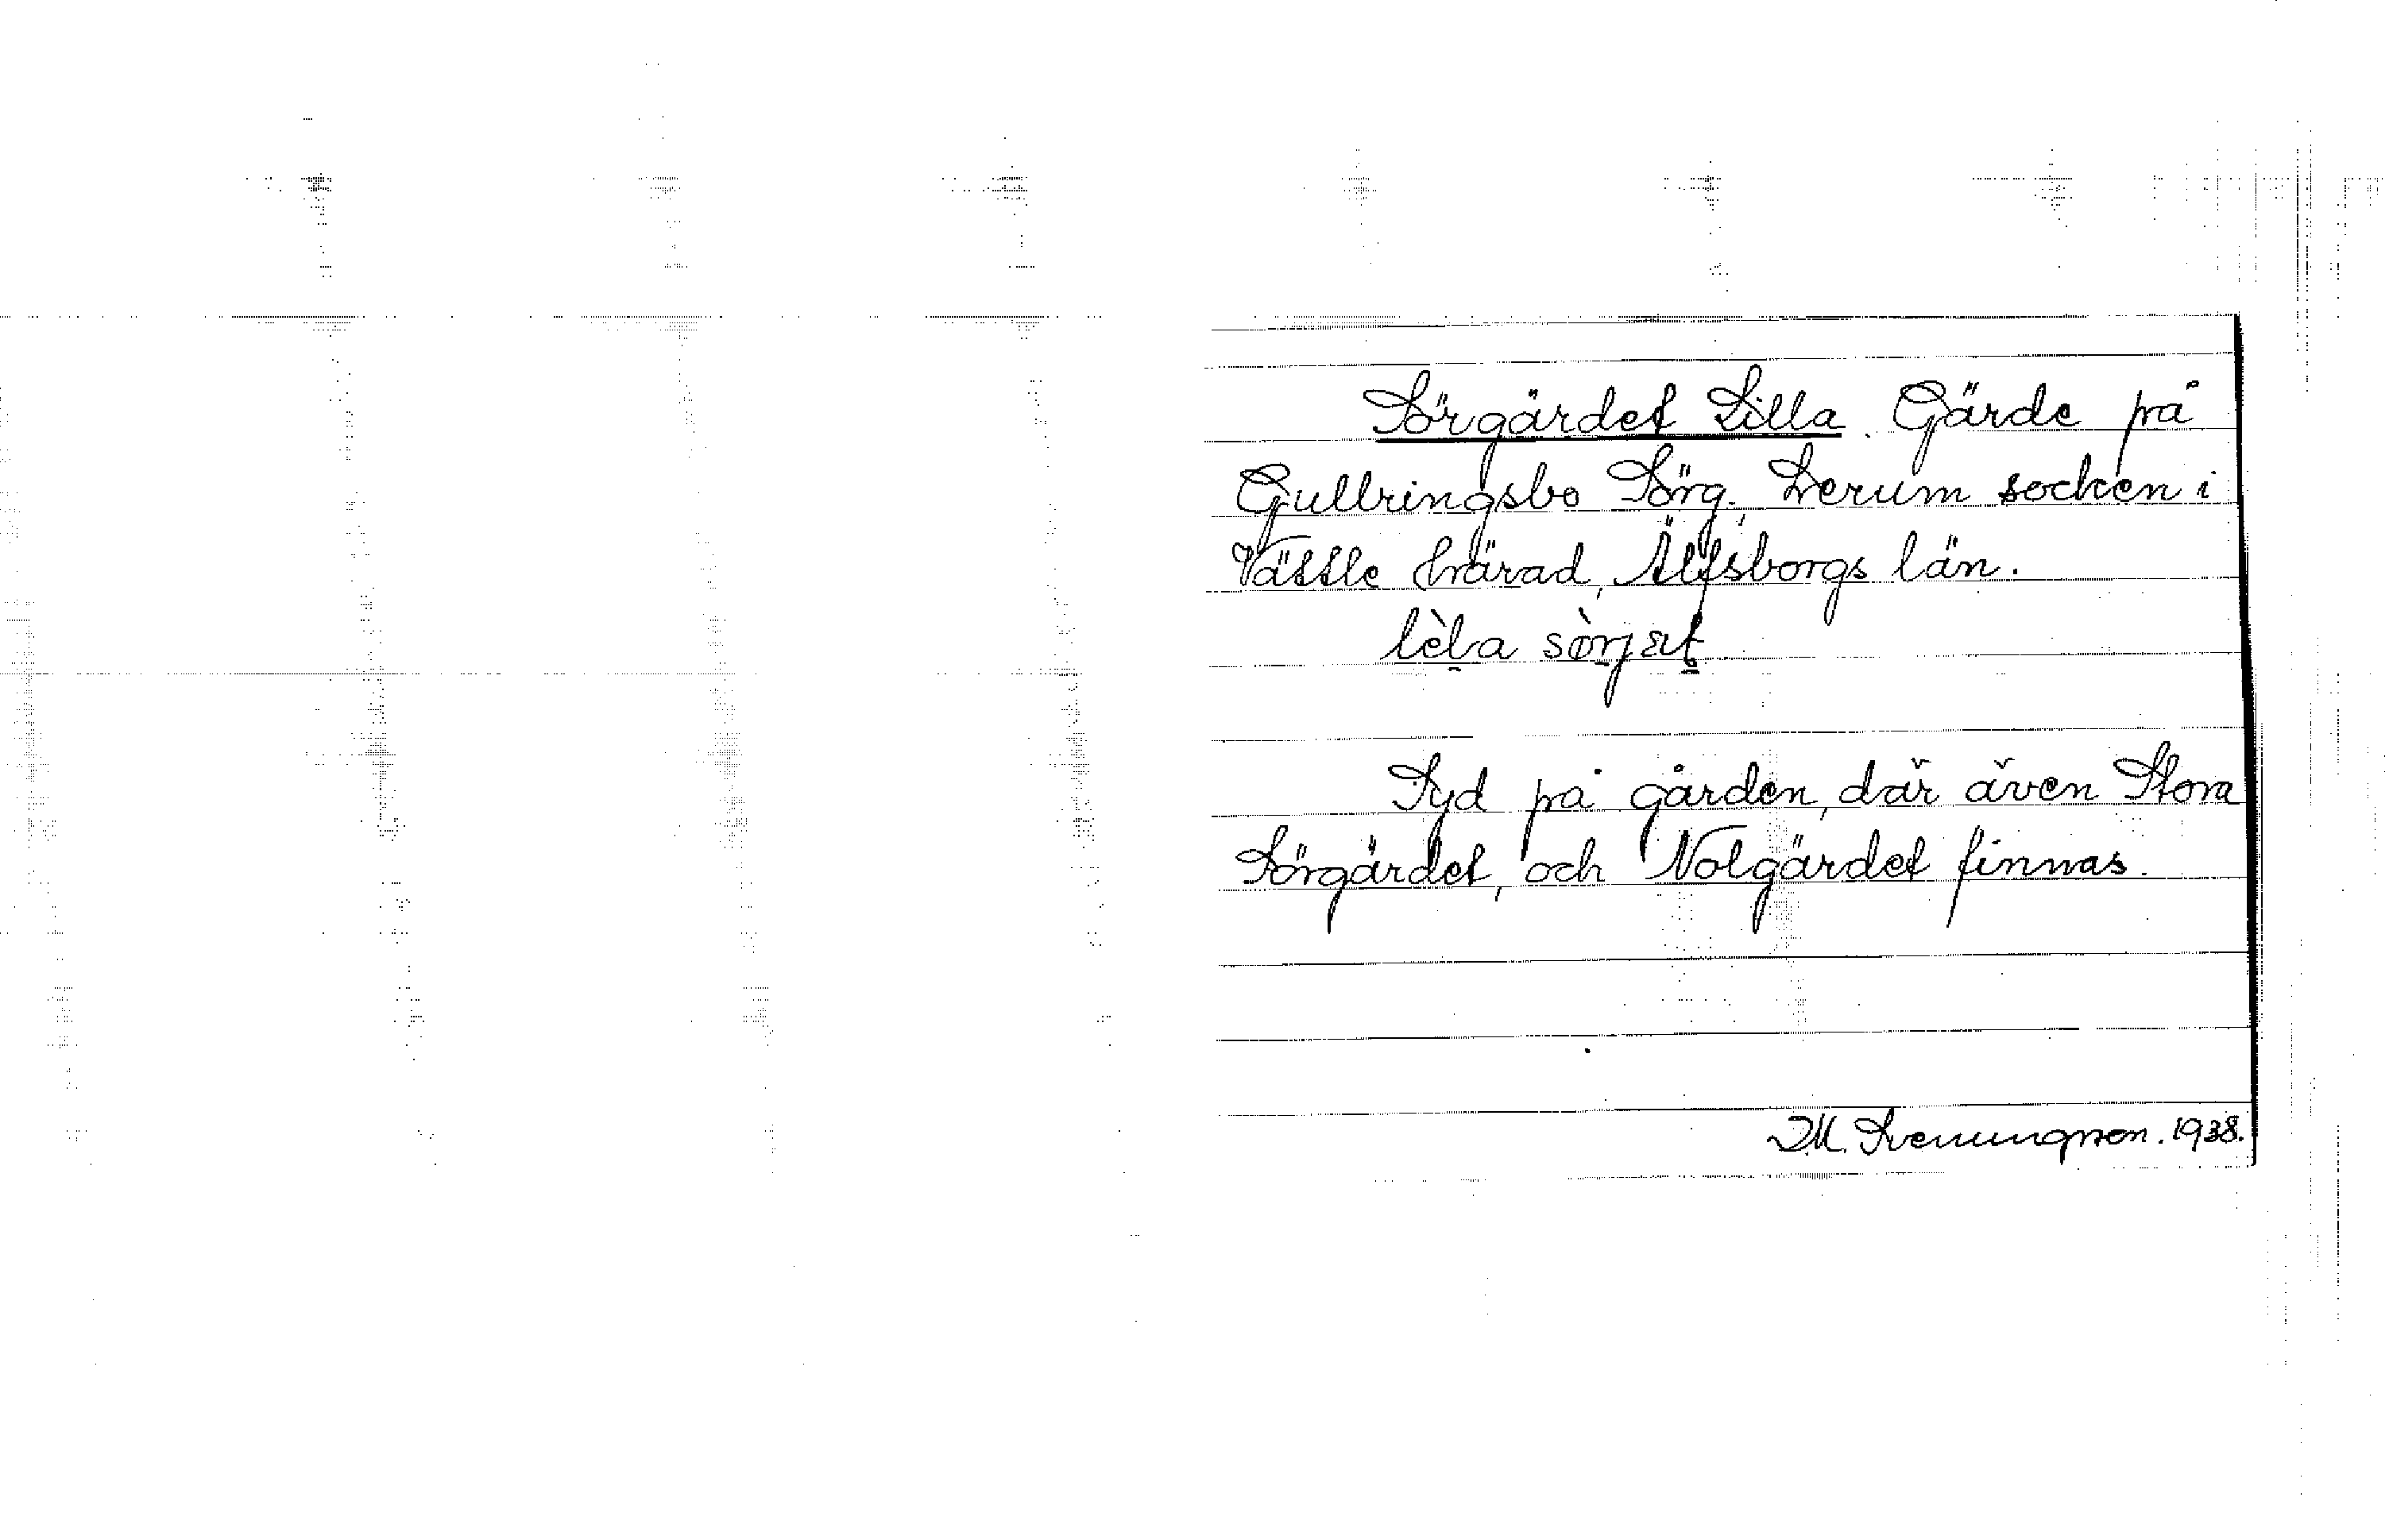 Sörgärdet Lilla. Gärde på
Gullringsbo Sörg., Lerum socken i
Vättle härad, Älfsborgs län.
lèla sörjæt
Syd på gården, där även Stora
Sörgärdet, och Nolgärdet finnas.
I.M. Svenungsson. 1938.